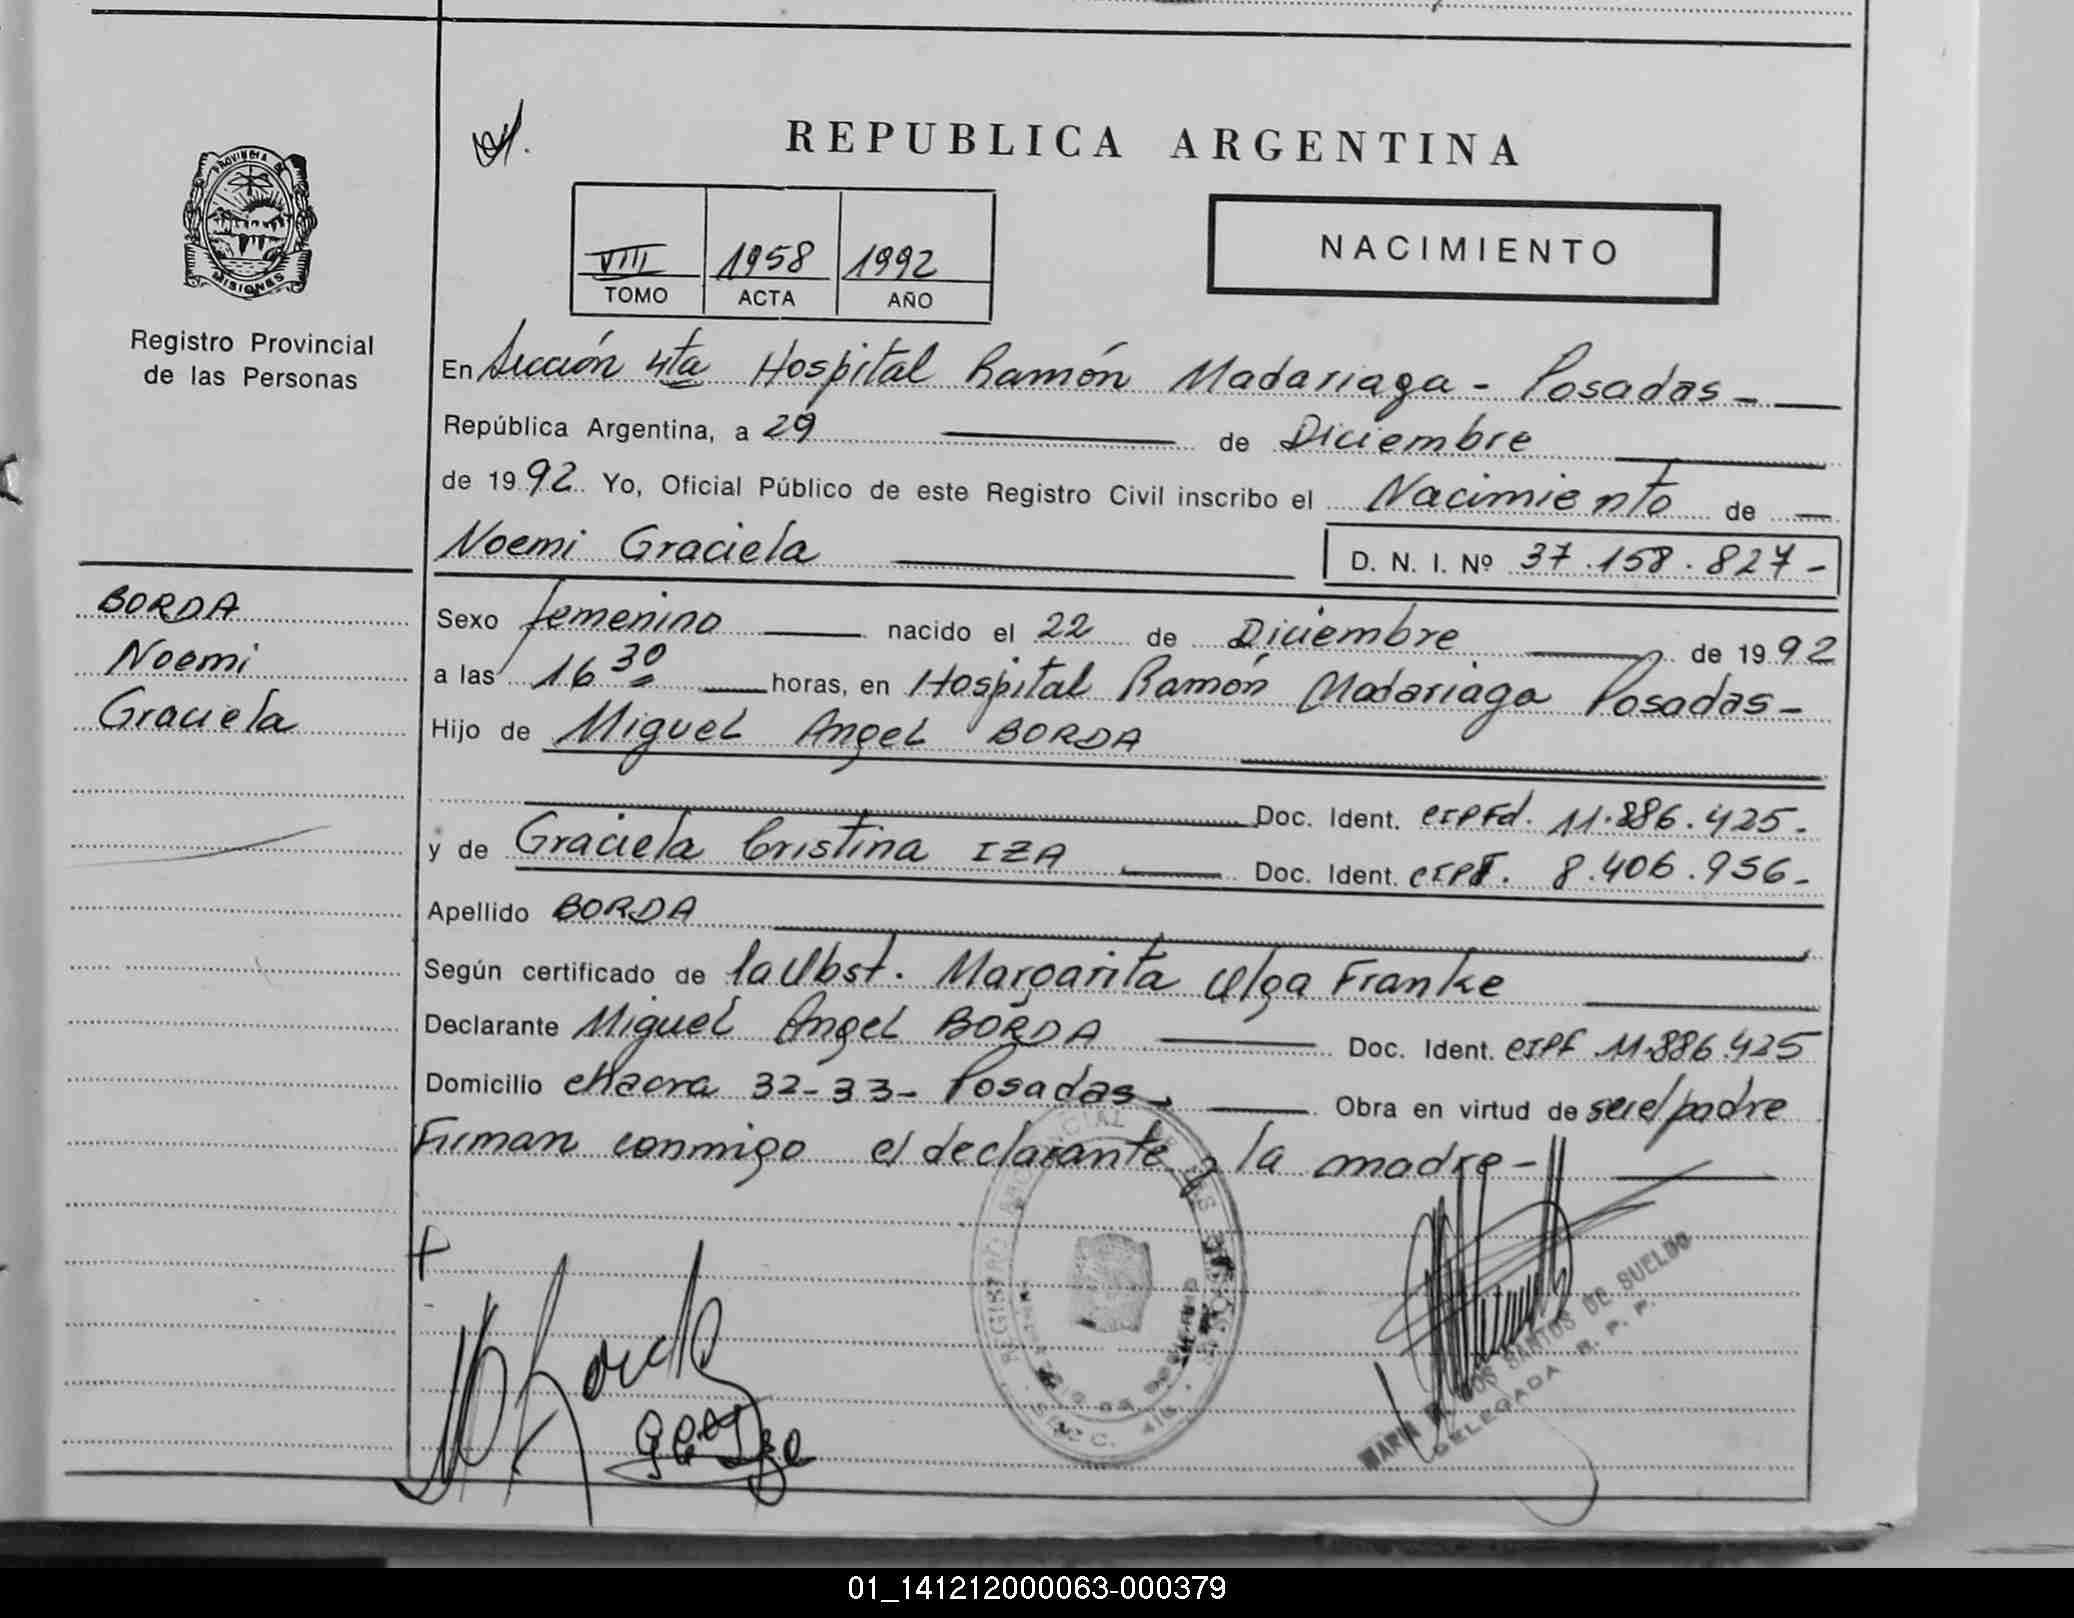 REPUBLICA ARGENTINA
PROVINCIA DE
MISIONES
Registro Provincial
de las Personas
VIII 1958 1992
TOMO ACTA AÑO
NACIMIENTO
En Sección 4ta Hospital Ramón Madariaga - Posadas -
República Argentina, a 29 de Diciembre
de 1992 Yo, Oficial Público de este Registro Civil inscribo el Nacimiento de
Noemi Graciela D. N. I. Nº 37.158.827-
BORDA
Noemi
Graciela
Sexo femenino nacido el 22 de Diciembre de 1992
a las 16 30 horas, en Hospital Ramón Madariaga Posadas-
Hijo de Miguel Angel BORDA
Doc. Ident. CIPFd. 11.886.425-
y de Graciela Cristina IZA Doc. Ident. CIPF. 8.406.956-
Apellido BORDA
Según certificado de la Obst. Margarita Olga Franke
Declarante Miguel Angel BORDA Doc. Ident. CIPF 11.886.425
Domicilio chacra 32-33- Posadas- Obra en virtud de ser el padre
Firman conmigo el declarante y la madre-
REGISTRO PROVINCIAL DE LAS PERSONAS
MARIA DOS SANTOS DE SUELDO
DELEGADA R. P. P.
01_141212000063-000379